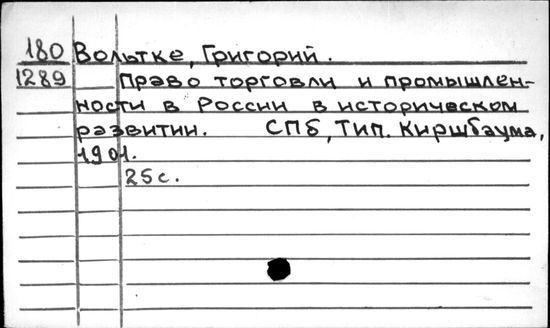 180 Вольтке, Григорий.
1289 Право торговли и промышлен-
ности в России в историческом
развитии. СПб, Тип. Киршбаума,
1901.
25 с.